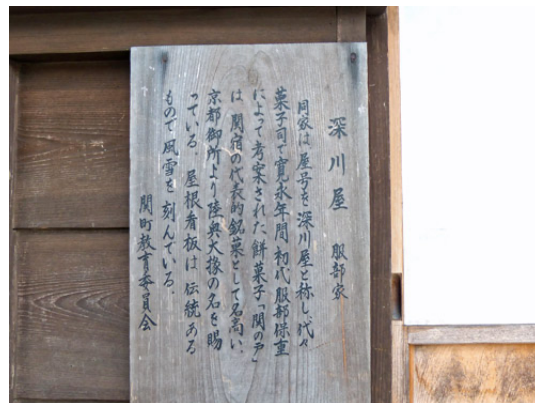 深川屋 服部家
同家は屋号を深川屋と称し、代々
菓子司で寛永年間初代服部保重
によって考案された餅菓子「関の戸」
は、関宿の代表的銘菓として名高い、
京都御所より陸奥大掾の名を賜
っている。屋根看板は伝統ある
もので風雪を刻んでいる。
関町教育委員会